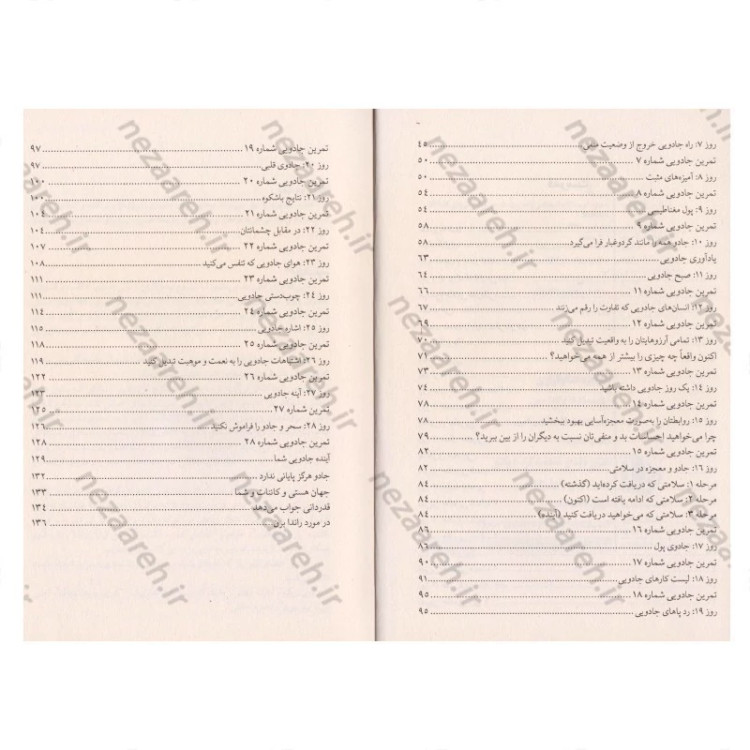 روز ۷: راه جادویی خروج از وضعیت منفی ۴۵
تمرین جادویی شماره ۷ ۵۰
روز ۸: آمیزه‌های مثبت ۵۰
تمرین جادویی شماره ۸ ۵۴
روز ۹: پول مغناطیسی ۵۴
تمرین جادویی شماره ۹ ۵۸
روز ۱۰: جادو همه را مانند گردوغبار فرا می‌گیرد ۵۸
یادآوری جادویی ۶۳
روز ۱۱: صبح جادویی ۶۴
تمرین جادویی شماره ۱۱ ۶۶
روز ۱۲: انسان‌های جادویی که تفاوت را رقم می‌زنند ۶۷
تمرین جادویی شماره ۱۲ ۶۹
روز ۱۳: تمامی آرزوهایتان را به واقعیت تبدیل کنید ۷۰
اکنون واقعاً چه چیزی را بیشتر از همه می‌خواهید؟ ۷۱
تمرین جادویی شماره ۱۳ ۷۳
روز ۱۴: یک روز جادویی داشته باشید ۷۴
تمرین جادویی شماره ۱۴ ۷۸
روز ۱۵: روابطتان را به‌صورت معجزه‌آسایی بهبود ببخشید ۷۸
چرا می‌خواهید احساسات بد و منفی‌تان نسبت به دیگران را از بین ببرید؟ ۷۹
تمرین جادویی شماره ۱۵ ۸۲
روز ۱۶: جادو و معجزه در سلامتی ۸۲
مرحله ۱: سلامتی که دریافت کرده‌اید (گذشته) ۸۴
مرحله ۲: سلامتی که ادامه یافته است (اکنون) ۸۴
مرحله ۳: سلامتی که می‌خواهید دریافت کنید (آینده) ۸۴
تمرین جادویی شماره ۱۶ ۸۶
روز ۱۷: جادوی پول ۸۶
تمرین جادویی شماره ۱۷ ۹۰
روز ۱۸: لیست کارهای جادویی ۹۱
تمرین جادویی شماره ۱۸ ۹۵
روز ۱۹: رد پاهای جادویی ۹۵
تمرین جادویی شماره ۱۹ ۹۷
روز ۲۰: جادوی قلبی ۹۷
تمرین جادویی شماره ۲۰ ۱۰۰
روز ۲۱: نتایج باشکوه
تمرین جادویی شماره ۲۱ ۱۰۴
روز ۲۲: در مقابل چشمانتان ۱۰۴
تمرین جادویی شماره ۲۲ ۱۰۷
روز ۲۳: هوای جادویی که تنفس می‌کنید ۱۰۸
تمرین جادویی شماره ۲۳ ۱۱۱
روز ۲۴: چوب‌دستی جادویی ۱۱۱
تمرین جادویی شماره ۲۴ ۱۱۴
روز ۲۵: اشاره جادویی ۱۱۵
تمرین جادویی شماره ۲۵ ۱۱۸
روز ۲۶: اشتباهات جادویی را به نعمت و موهبت تبدیل کنید ۱۱۹
تمرین جادویی شماره ۲۶ ۱۲۲
روز ۲۷: آینه جادویی ۱۲۳
تمرین شماره ۲۷ ۱۲۵
روز ۲۸: سحر و جادو را فراموش نکنید ۱۲۶
تمرین جادویی شماره ۲۸ ۱۲۸
آینده جادویی شما
جادو هرگز پایانی ندارد ۱۳۲
جهان هستی و کائنات و شما ۱۳۳
قدردانی جواب می‌دهد ۱۳۴
در مورد راندا برن ۱۳۶
nezaareh.ir
nezaareh.ir
nezaareh.ir
nezaareh.ir
nezaareh.ir
nezaareh.ir
nezaareh.ir
nezaareh.ir
nezaareh.ir